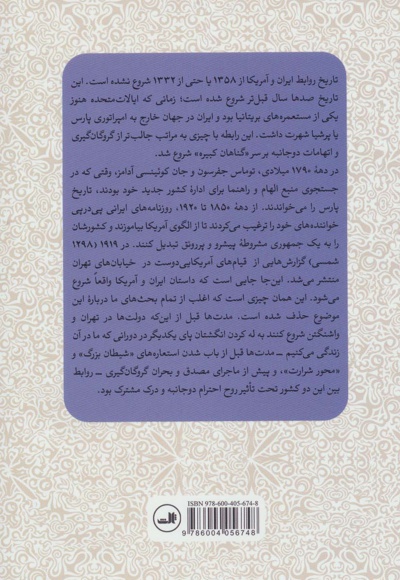 تاریخ روابط ایران و آمریکا از ۱۳۵۸ یا حتی از ۱۳۳۲ شروع نشده است. این
تاریخ صدها سال قبل‌تر شروع شده است؛ زمانی که ایالات‌متحده هنوز
یکی از مستعمره‌های بریتانیا بود و ایران در جهان خارج به امپراتوری پارس
یا پرشیا شهرت داشت. این رابطه با چیزی به مراتب جالب‌تر از گروگان‌گیری
و اتهامات دوجانبه بر سر «گناهان کبیره» شروع شد.
در دههٔ ۱۷۹۰ میلادی، توماس جفرسون و جان کوئینسی آدامز، وقتی که در
جستجوی منبع الهام و راهنما برای ادارهٔ کشور جدید خود بودند، تاریخ
پارس را می‌خواندند. از دههٔ ۱۸۵۰ تا ۱۹۲۰، روزنامه‌های ایرانی پی‌درپی
خواننده‌های خود را ترغیب می‌کردند تا از الگوی آمریکا بیاموزند و کشورشان
را به یک جمهوری مشروطهٔ پیشرو و پررونق تبدیل کنند. در ۱۹۱۹ (۱۲۹۸
شمسی) گزارش‌هایی از قیام‌های آمریکایی‌دوست در خیابان‌های تهران
منتشر می‌شد. این‌جا جایی است که داستان ایران و آمریکا واقعاً شروع
می‌شود. این همان چیزی است که اغلب از تمام بحث‌های ما دربارهٔ این
موضوع حذف شده است. مدت‌ها قبل از این‌که دولت‌ها در تهران و
واشنگتن شروع کنند به له کردن انگشتان پای یکدیگر در دورانی که ما در آن
زندگی می‌کنیم – مدت‌ها قبل از باب شدن استعاره‌های «شیطان بزرگ» و
«محور شرارت»، و پیش از ماجرای مصدق و بحران گروگان‌گیری – روابط
بین این دو کشور تحت تأثیر روح احترام دوجانبه و درک مشترک بود.
ISBN 978-600-405-674-8
9 786004 056748
ثالث